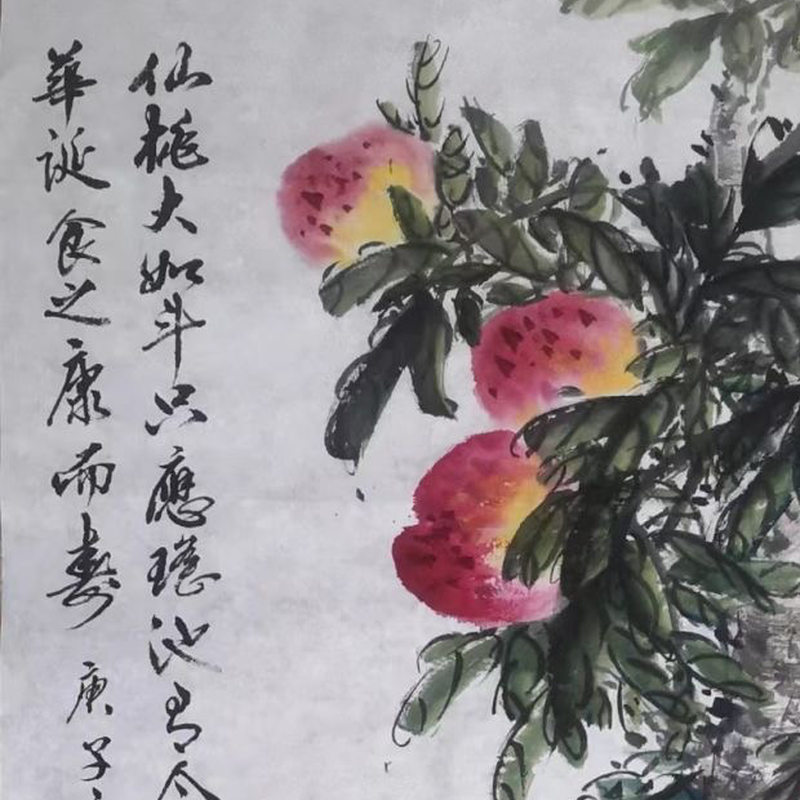 仙桃大如斗只應瑤池有今
華誕食之康而壽
庚子